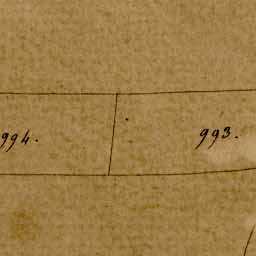 994.
993.